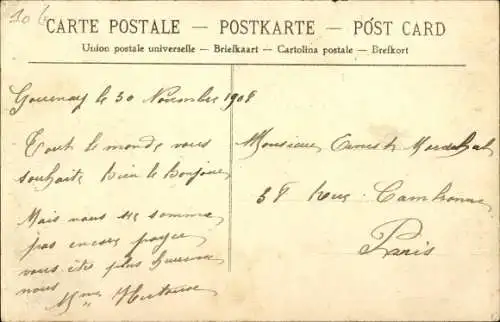 CARTE POSTALE – POSTKARTE – PÓST CARD
Union postale universelle – Briefkaart – Cartolina postale – Brefkort
Gournay le 30 Novembre 1908
Tout le monde vous
souhaite bien le bonjour
Mais nous ne somme
pas encore
vous êtes plus
nous
Mme
Monsieur Ernest Marechal
38 Rue Cambronne
Paris